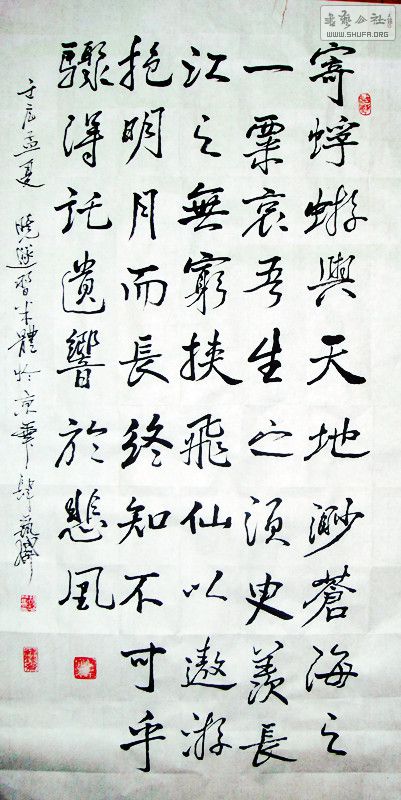 寄蜉蝣與天地渺蒼海之
一粟哀吾生之須臾羨長
江之無窮挾飛仙以遨游
抱明月而長終知不可乎
驟得託遺響於悲風
壬辰孟夏 曉 習米體於京華
书艺公社
WWW.SHUFA.ORG